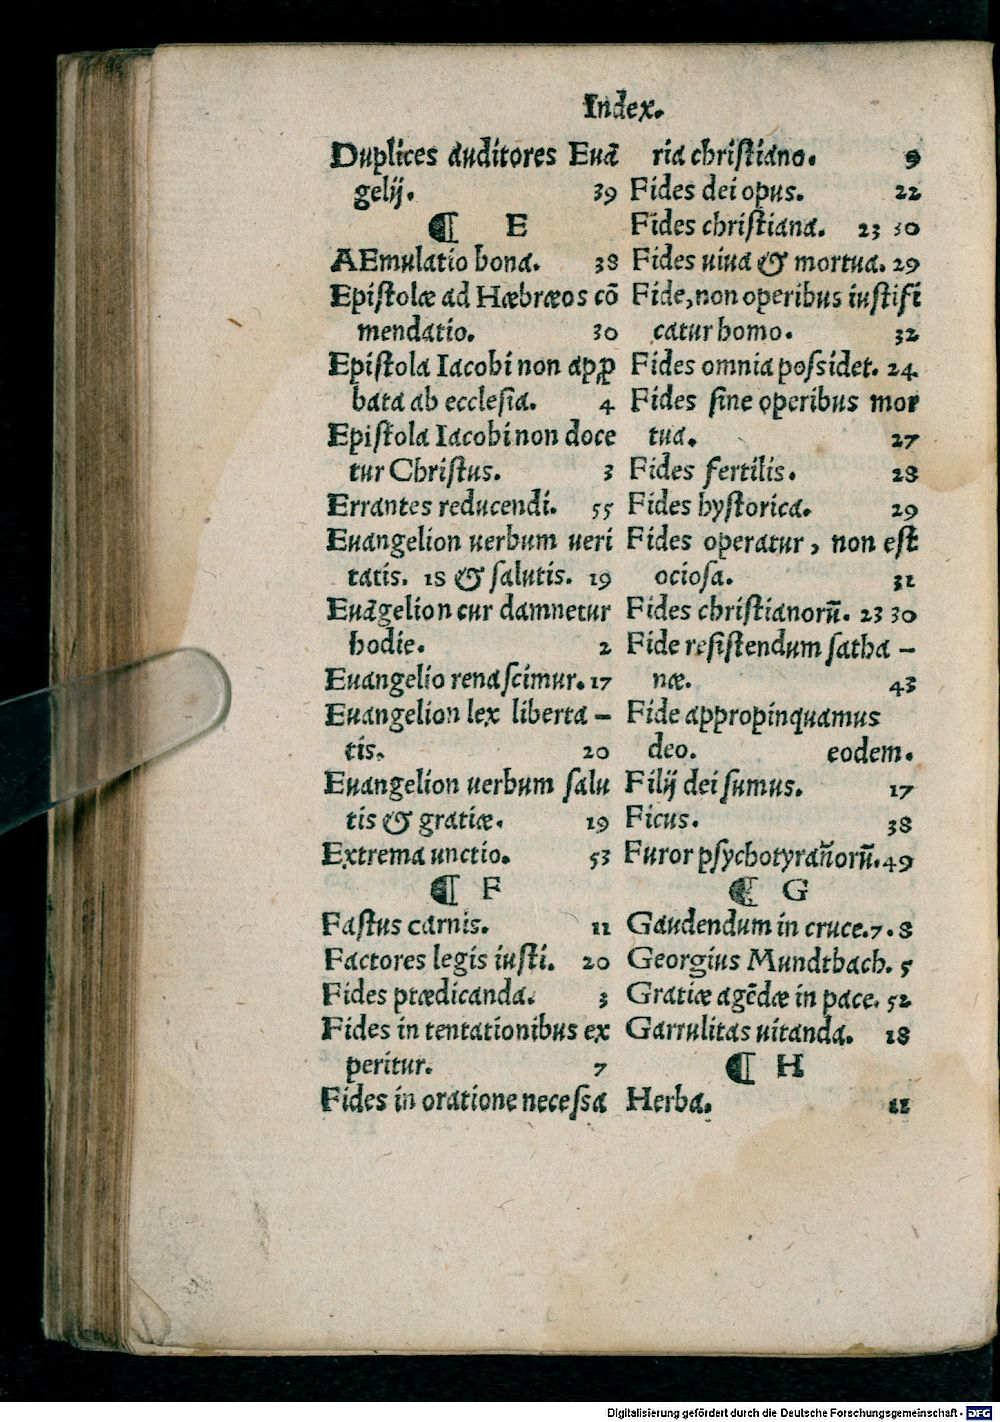 Index.
Duplices auditores Euā
gelij. 39
¶ E
AEmulatio bona. 38
Epistolæ ad Hæbræos cō
mendatio. 30
Epistola Iacobi non apꝓ
bata ab ecclesia. 4
Epistola Iacobi non doce
tur Christus. 3
Errantes reducendi. 55
Euangelion uerbum ueri
tatis. 18 & salutis. 19
Euāgelion cur damnetur
hodie. 2
Euangelio renascimur. 17
Euangelion lex liberta -
tis. 20
Euangelion uerbum salu
tis & gratiæ. 19
Extrema unctio. 53
¶ F
Fastus carnis. 11
Factores legis iusti. 20
Fides prædicanda. 3
Fides in tentationibus ex
peritur. 7
Fides in oratione necessa
ria christiano. 9
Fides dei opus. 22
Fides christiana. 23 30
Fides uiua & mortua. 29
Fide, non operibus iustifi
catur homo. 32
Fides omnia possidet. 24
Fides sine operibus mor
tua. 27
Fides fertilis. 28
Fides hystorica. 29
Fides operatur, non est
ociosa. 31
Fides christianorū. 23 30
Fide resistendum satha -
næ. 43
Fide appropinquamus
deo. eodem.
Filij dei sumus. 17
Ficus. 38
Furor psychotyrañorū. 49
¶ G
Gaudendum in cruce. 7. 8
Georgius Mundtbach. 5
Gratiæ agēdæ in pace. 52
Garrulitas uitanda. 18
¶ H
Herba. 11
Digitalisierung gefördert durch die Deutsche Forschungsgemeinschaft - DFG